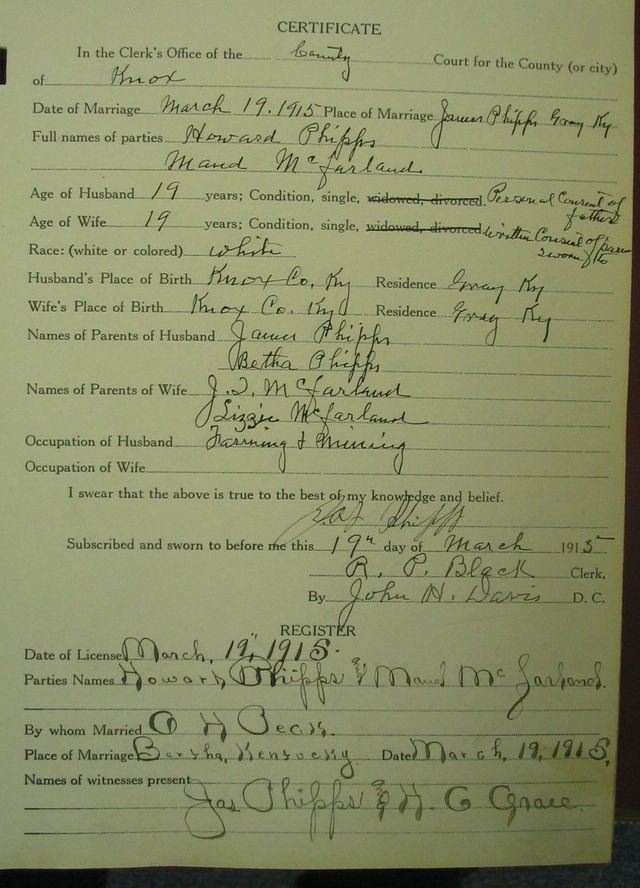 CERTIFICATE
In the Clerk's Office of the County Court for the County (or city)
of Knox
Date of Marriage March 19. 1915 Place of Marriage James Phipps Gray Ky
Full names of parties Howard Phipps
Maud McFarland
Age of Husband 19 years; Condition, single, widowed, divorced. Personal Consent of father
Age of Wife 19 years; Condition, single, widowed, divorced written Consent of sworn to
Race: (white or colored) white
Husband's Place of Birth Knox Co. Ky Residence Gray Ky
Wife's Place of Birth Knox Co. Ky Residence Gray Ky
Names of Parents of Husband James Phipps
Betha Phipps
Names of Parents of Wife J. T. McFarland
Lizzie McFarland
Occupation of Husband Farming & Mining
Occupation of Wife
I swear that the above is true to the best of my knowledge and belief.
Phipps
Subscribed and sworn to before me this 19th day of March 1915
R. P. Black Clerk,
By John H. Davis D. C.
REGISTER
Date of License March, 19", 1915.
Parties Names Howard Phipps & Maud McFarland.
By whom Married O H Peck.
Place of Marriage Bertha, Kentucky Date March, 19, 1915,
Names of witnesses present
Jas Phipps & H. C Grace